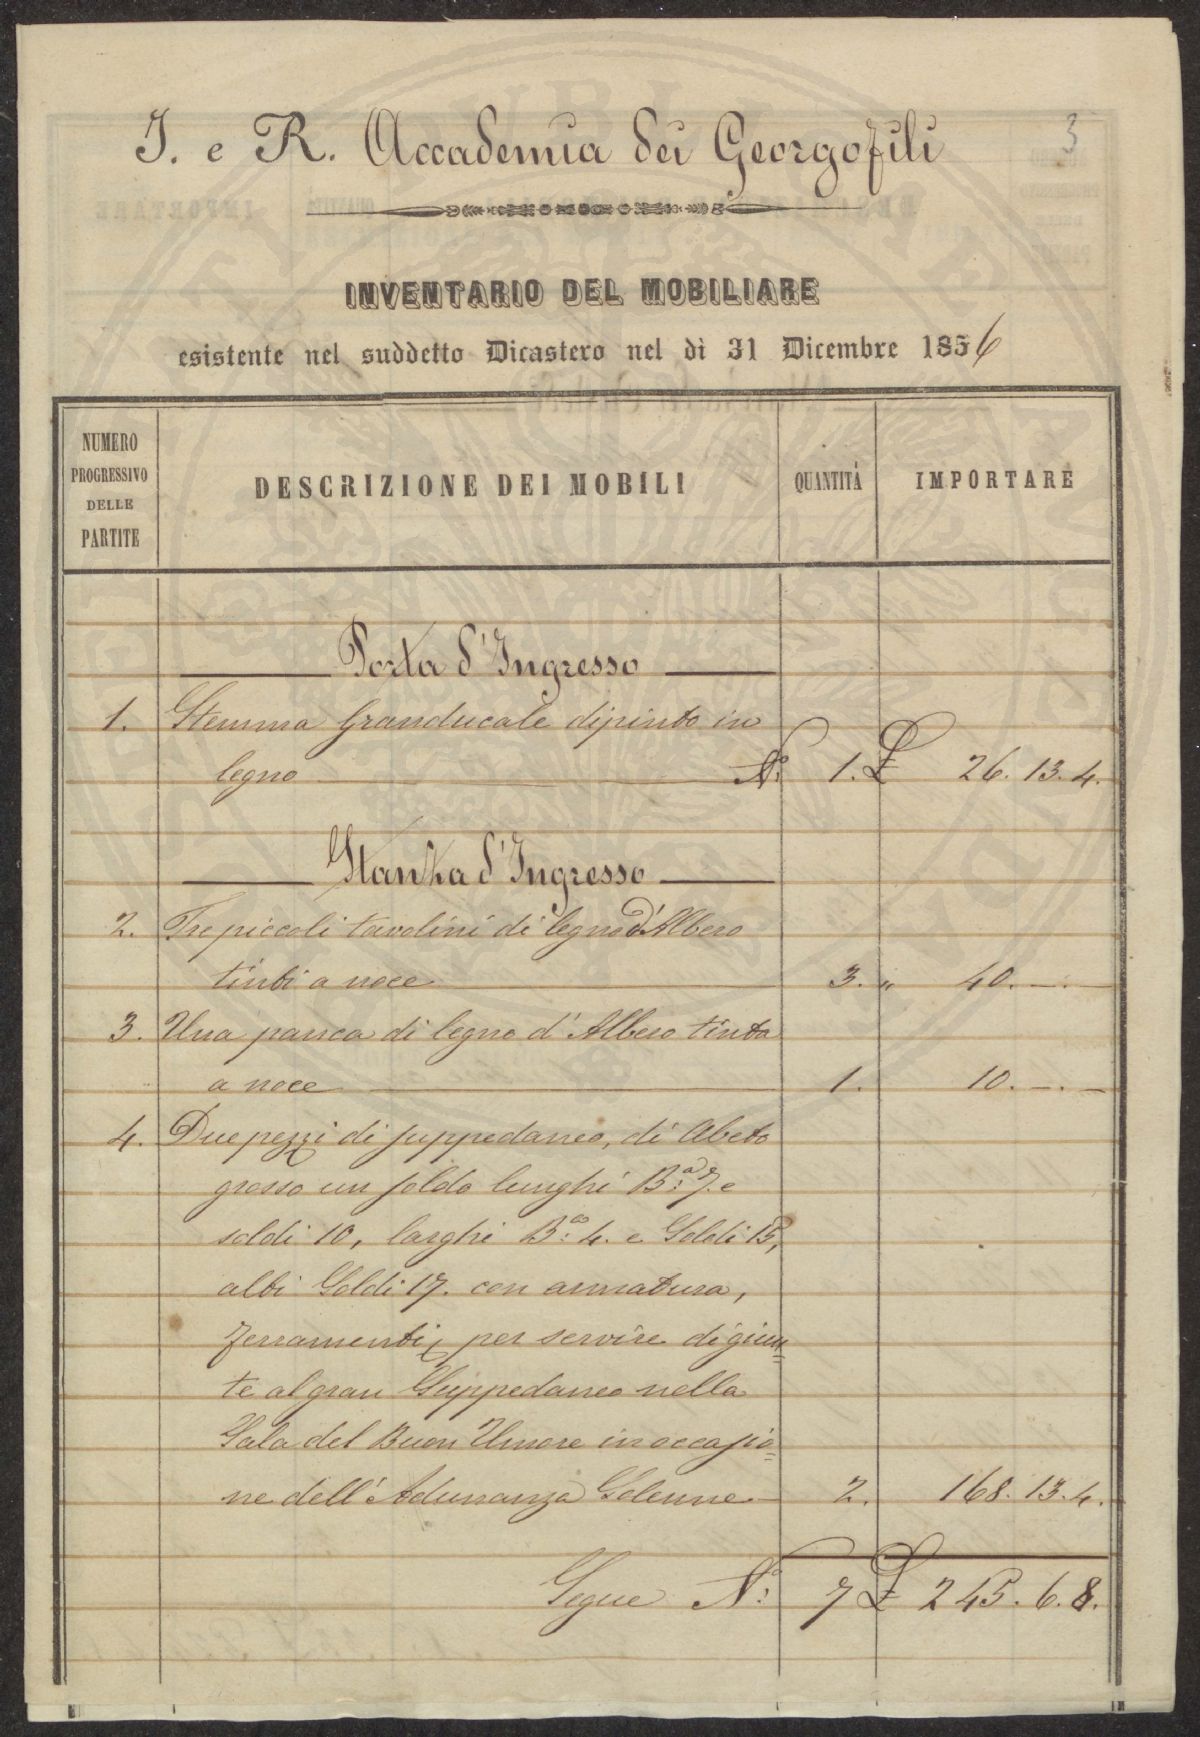 3
I. e R. Accademia dei Georgofili
INVENTARIO DEL MOBILIARE
esistente nel suddetto Dicastero nel dì 31 Dicembre 1856
NUMERO PROGRESSIVO DELLE PARTITE DESCRIZIONE DEI MOBILI QUANTITÀ IMPORTARE
Porta d'Ingresso
1. Stemma Granducale dipinto in
legno N.° 1. £ 26. 13. 4.
Stanza d'Ingresso
2. Tre piccoli tavolini di legno d'Albero
tinti a noce 3. " 40. — . —
3. Una panca di legno d'Albero tinta
a noce 1. 10. — . —
4. Due pezzi di suppedaneo, di Abeto
grosso un soldo lunghi B.a 7. e
soldi 10, larghi B.a 4. e Soldi 15,
alti Soldi 17. con armatura,
ferramenti, per servire di giun=
te al gran Suppedaneo nella
Sala del Buon Umore in occasio=
ne dell'Adunanza Solenne 2. 168. 13. 4.
Segue N.° 7 £ 245. 6. 8.